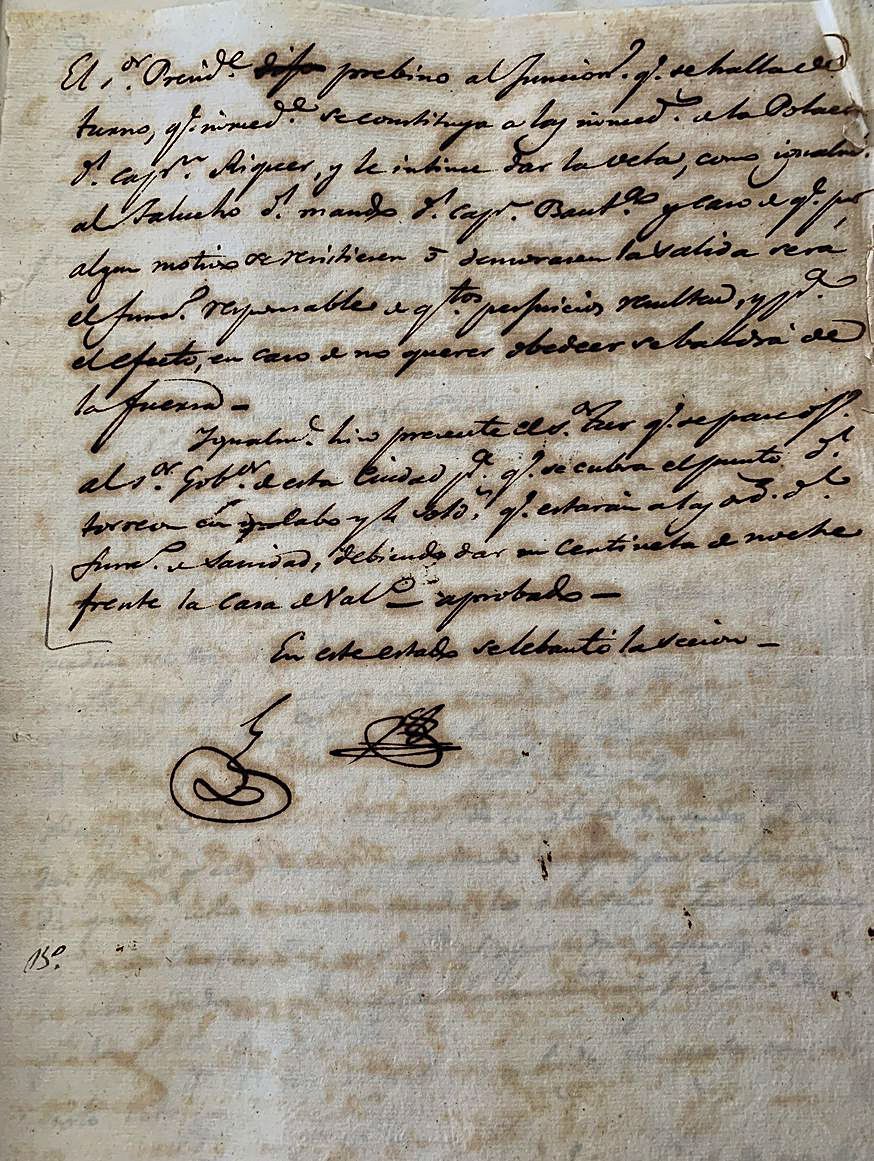 El S.or Presid.te dispo prebino al Funcion.o q.e se halla de
turno, q.e inmed.te se constituya a las inmed.s de la Polacra
d.l Cap.n Riquer, y le intime dar la vela, como igualm.te
al Falucho d.l mando d.l Cap.n Baut.a y caso de q.e por
algun motivo se resistieren ó demorasen la salida será
el func.o responsable de q.tos perjuicios resulten, y p.a
el efecto, en caso de no querer obedecer se baldrá de
la fuerza –
Igualm.te hizo presente el S.or q.e se pase of.o
al S.or Gob.or de esta Ciudad p.a q.e se cubra el punto d.l
torreon con un Cabo y 4 sold.s q.e estarán a las ord.s d.l
Func.o de Sanidad, debiendo dar un Centinela de noche
frente la Casa de Val.s – aprobado –
En este estado se lebantó la secion –
B.o